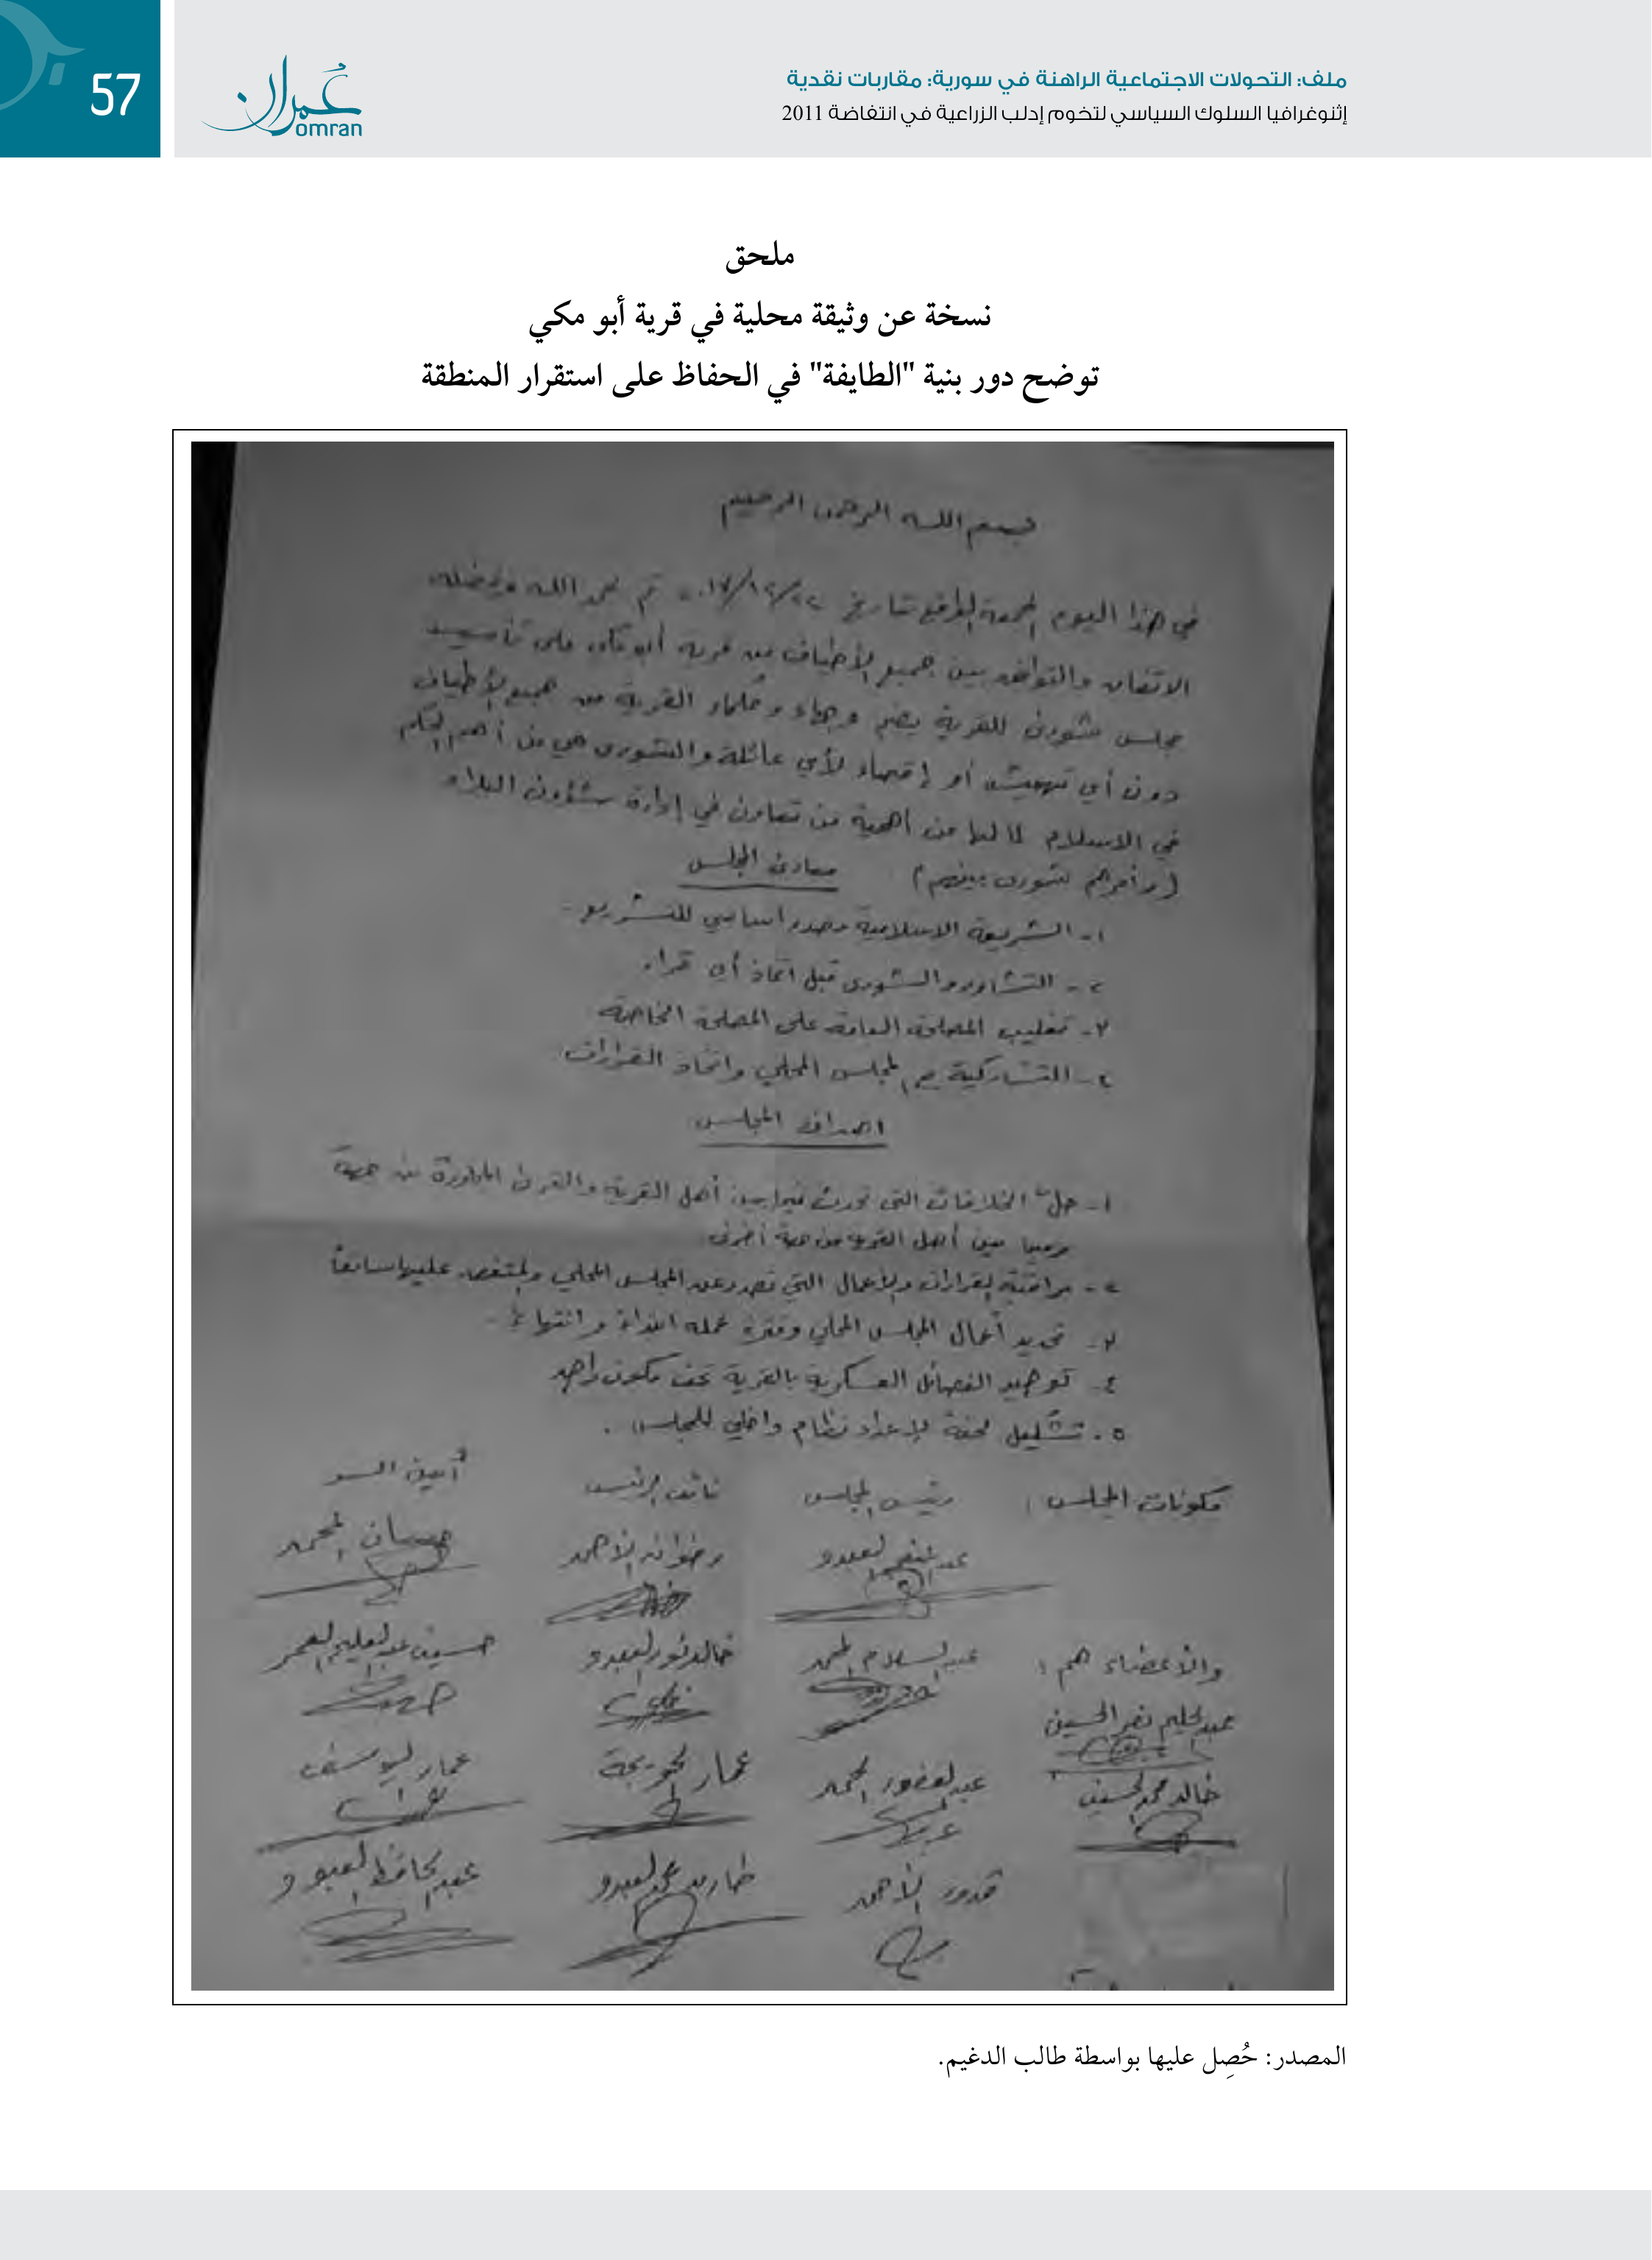 ملف: التحولات الاجتماعية الراهنة في سورية: مقاربات نقدية
إثنوغرافيا السلوك السياسي لتخوم إدلب الزراعية في انتفاضة 2011
عُمران
omran
57
ملحق
نسخة عن وثيقة محلية في قرية أبو مكي
توضح دور بنية "الطايفة" في الحفاظ على استقرار المنطقة
بسم الله الرحمن الرحيم
في هذا اليوم الجمعة الواقع بتاريخ ٢٢/١٢/٢٠١٧ تم بحمد الله وبفضله
الاتفاق والتوافق بين جميع الأطياف من قرية أبو مكي على تأسيس
مجلس شورى للقرية يضم وجهاء وحكماء القرية من جميع الأطياف
دون أي تهميش أو إقصاء لأي عائلة والشورى هي من أهم الحكم
في الاسلام لما لها من أهمية من تعاون في إدارة شؤون البلاد
(وأمرهم شورى بينهم)
مبادئ المجلس
١- الشريعة الاسلامية مصدر أساسي للتشريع.
٢- التشاور والشورى قبل اتخاذ أي قرار.
٣- تغليب المصلحة العامة على المصلحة الخاصة
٤- التشاركية مع المجلس المحلي واتخاذ القرارات
أهداف المجلس
١- حل الخلافات التي تحدث فيما بين أهل القرية والقرى المجاورة من جهة
وفيما بين أهل القرية من جهة أخرى
٢- مراقبة القرارات والأعمال التي تصدر عن المجلس المحلي والمتفق عليها سابقاً
٣- تحديد أعمال المجلس المحلي وفترة عمله ابتداءً وانتهاءً.
٤- توحيد الفصائل العسكرية بالقرية تحت مكون واحد
٥- تشكيل لجنة لإعداد نظام داخلي للمجلس.
مكونات المجلس: رئيس المجلس نائب الرئيس أمين السر
عبد المنعم العبدو رضوان الأحمد حسان المحمد
والأعضاء هم: عبد السلام المحمد خالد نور العبدو حسين عبد العليم العمر
عبد الحليم نصر الحسين
خالد محمد الحسين عبد الغفور المحمد عمار الخويجة عمار اليوسف
قدور الأحمد طارق محمد العبدو عبد الحافظ العبدو
المصدر: حُصِل عليها بواسطة طالب الدغيم.